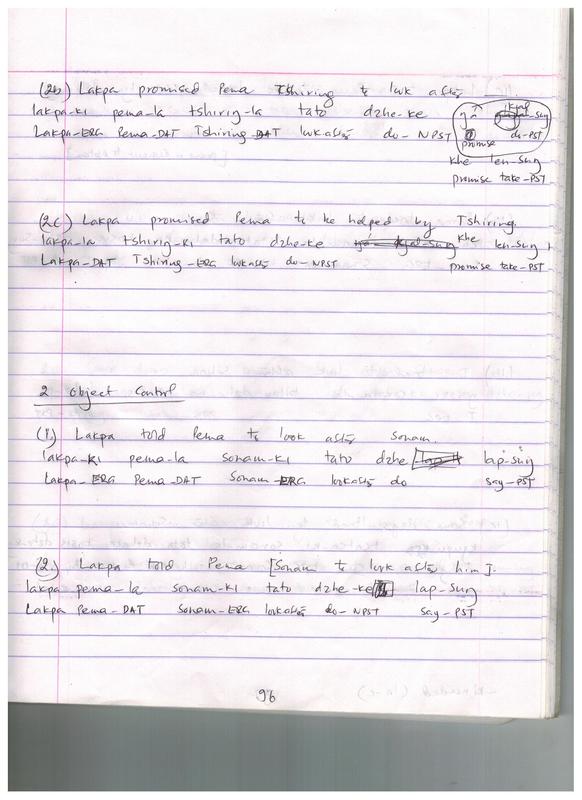 (2b) Lakpa promised Pema Tshiring to look after.
lakpa-ki pema-la tshirig-la tato dzhe-ke
Lakpa-ERG Pema-DAT Tshiring-DAT lookafter do-NPST
promise do-PST
khe len-suŋ
promise take-PST
(2c) Lakpa promised Pema to be helped by Tshiring.
lakpa-la tshirig-ki tato dzhe-ke khe len-suŋ
Lakpa-DAT Tshiring-ERG lookafter do-NPST promise take-PST
2 Object Control
(1.) Lakpa told Pema to look after Sonam.
lakpa-ki pema-la sonam-ki tato dzhe lap-suŋ
Lakpa-ERG Pema-DAT Sonam-ERG lookafter do say-PST
(2.) Lakpa told Pema [Sonam to look after him].
lakpa pema-la sonam-ki tato dzhe-ke lap-suŋ
Lakpa Pema-DAT Sonam-ERG lookafter do-NPST say-PST
96